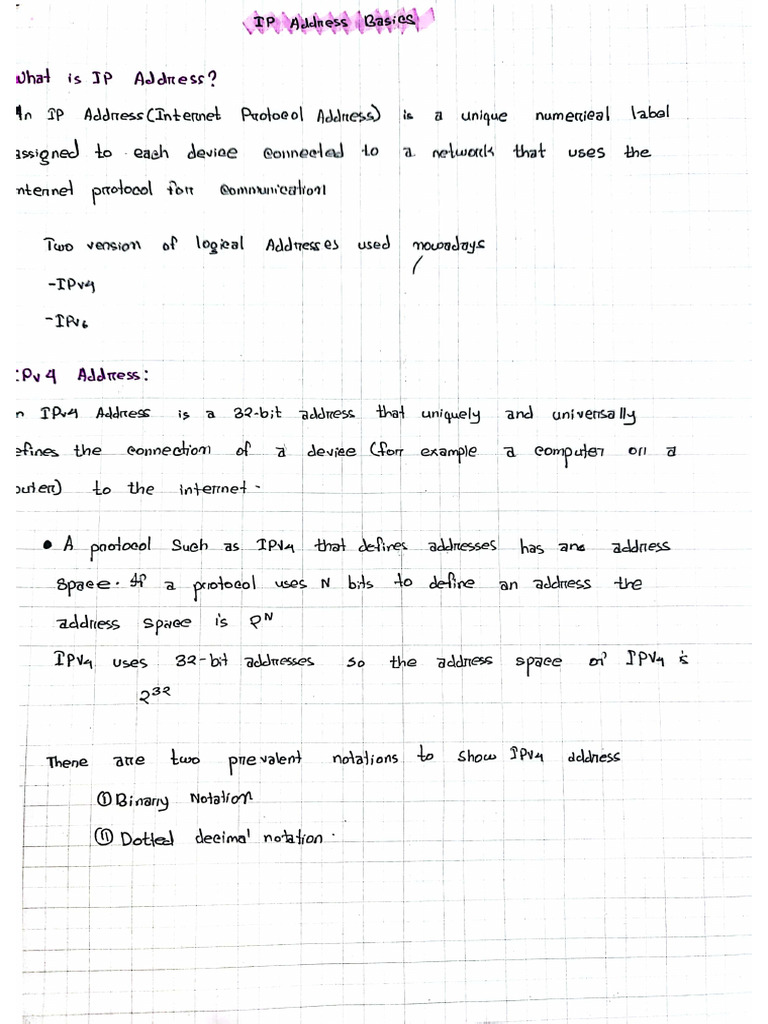 IP Address Basics
What is IP Address?
An IP Address (Internet Protocol Address) is a unique numerical label
assigned to each device connected to a network that uses the
nternet protocol for communication
Two version of logical Addresses used nowadays
-IPv4
-IPv6
IPv4 Address:
n IPv4 Address is a 32-bit address that uniquely and universally
efines the connection of a device (for example a computer or a
outer) to the internet.
• A protocol such as IPV4 that defines addresses has an address
space. If a protocol uses N bits to define an address the
address space is 2^N
IPV4 uses 32-bit addresses so the address space of IPV4 is
2^32
There are two prevalent notations to show IPV4 address
① Binary Notation
⑪ Dotted decimal notation.